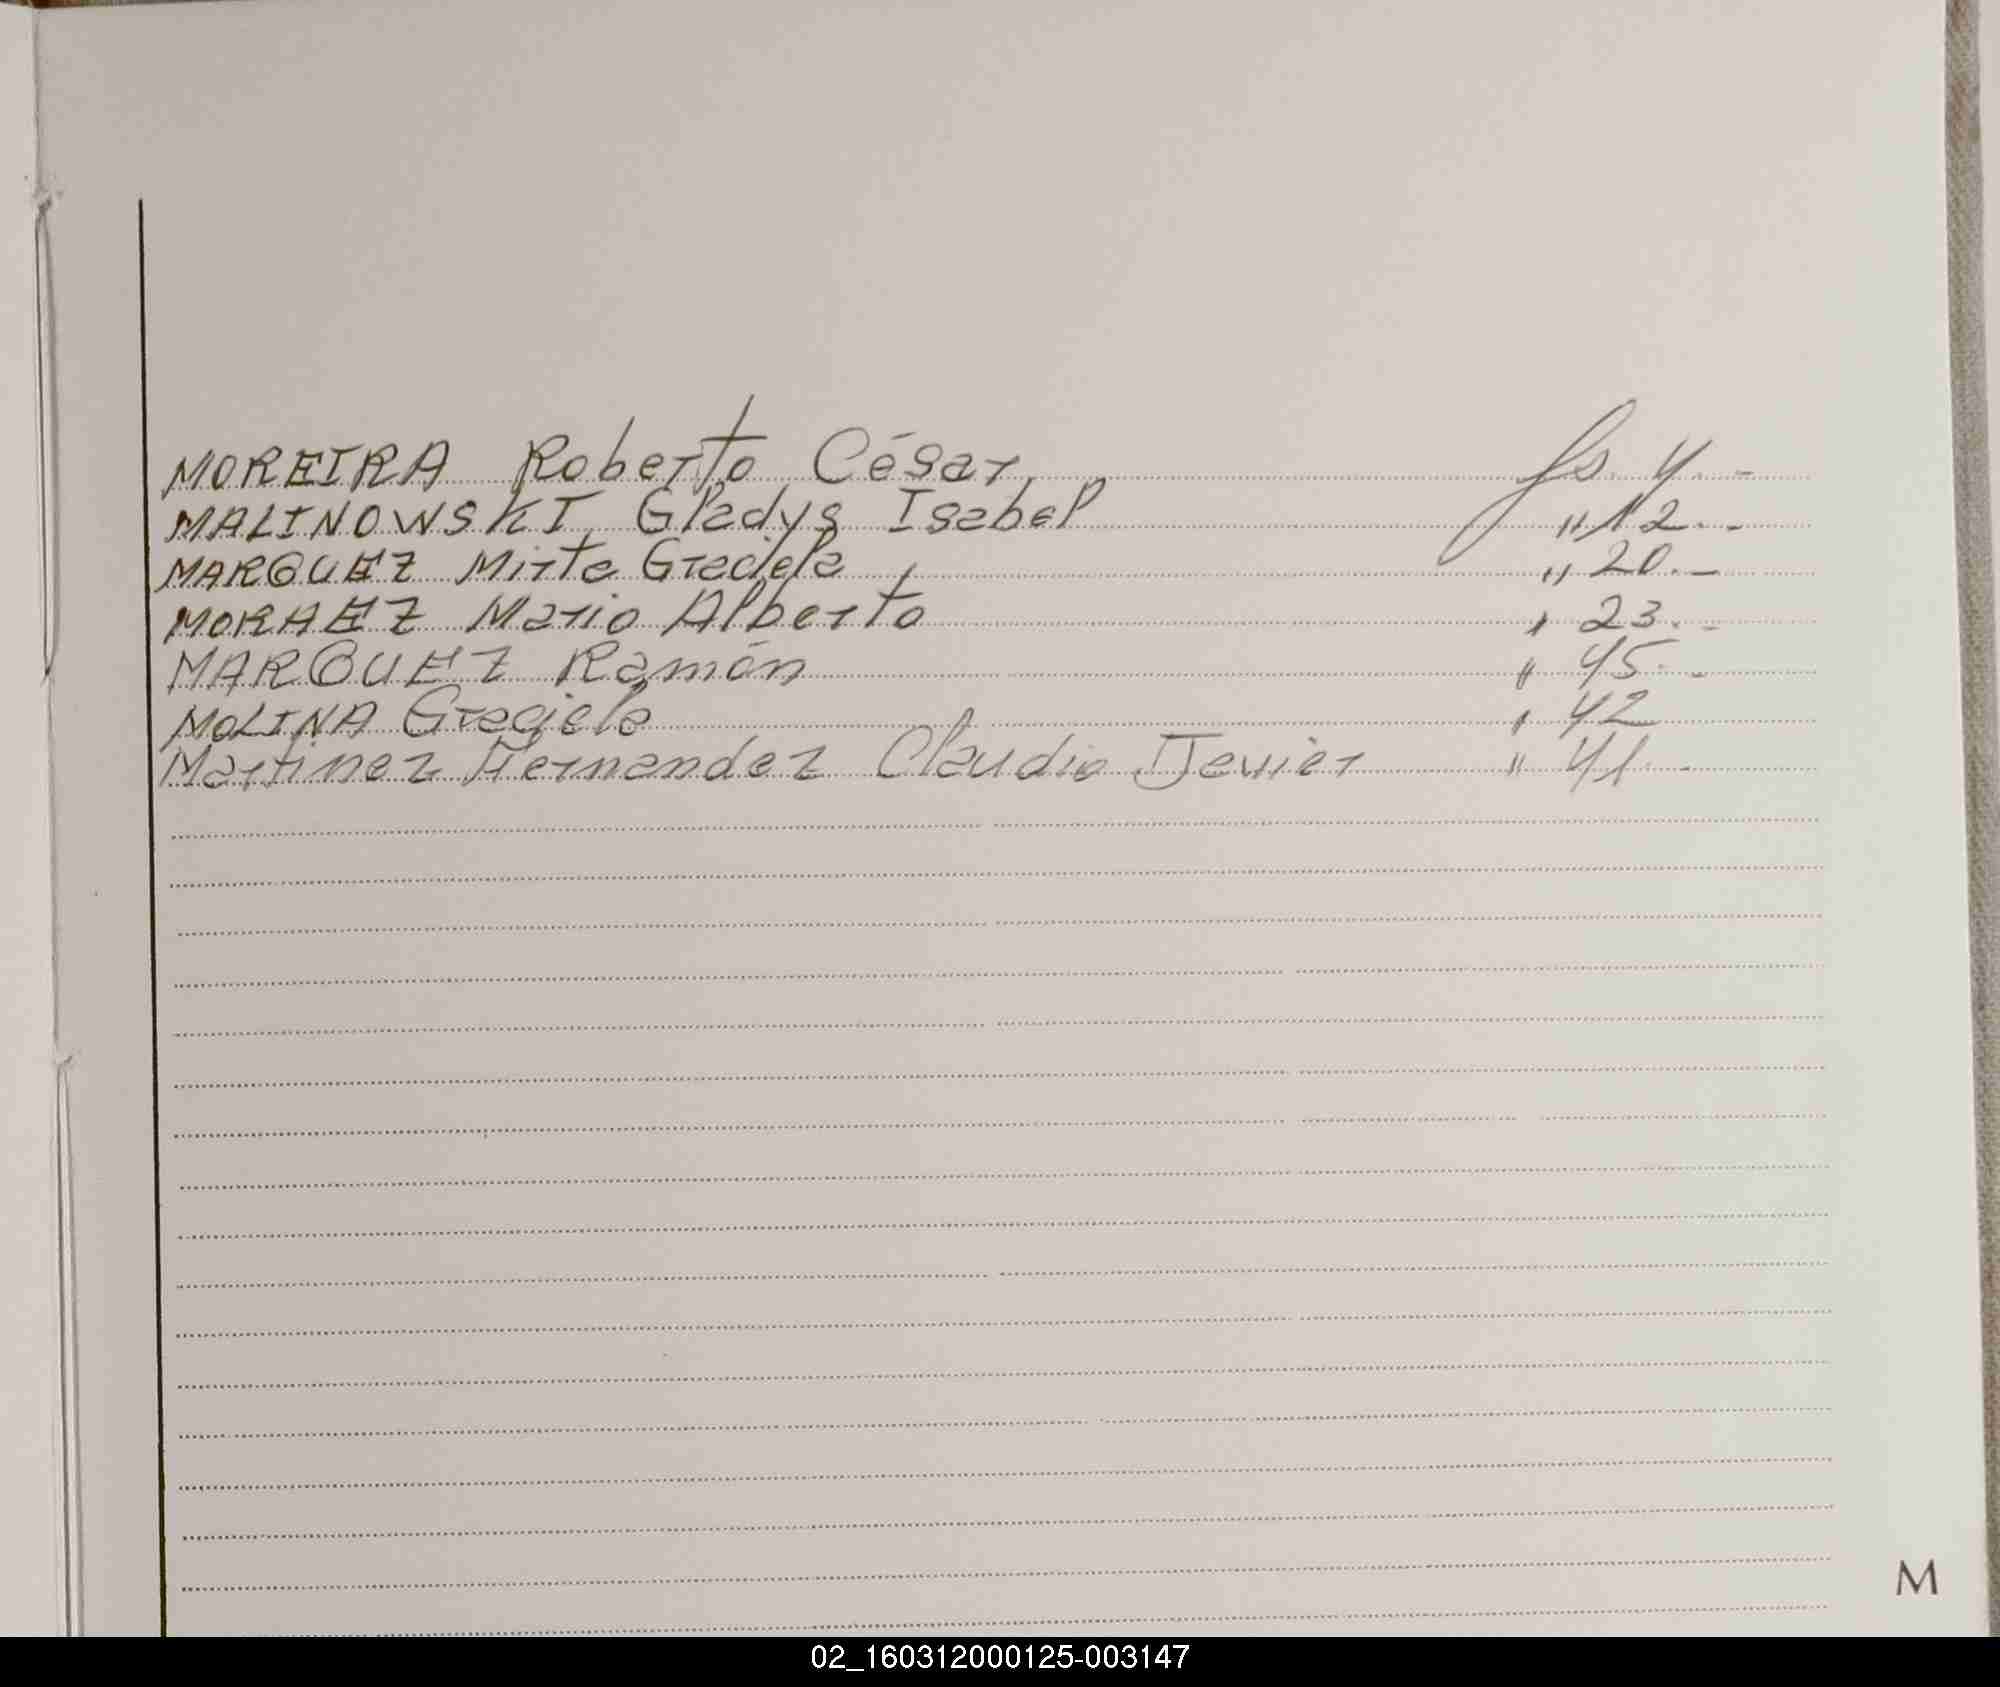 MOREIRA Roberto César fs. 4. -
MALINOWSKI Gladys Isabel " 12. -
MARQUEZ Mirta Graciela " 20. -
MORAEZ Mario Alberto " 23. -
MARQUEZ Ramón " 45. -
MOLINA Graciela " 42
Martinez Hernandez Claudio Javier " 41. -
M
02_160312000125-003147